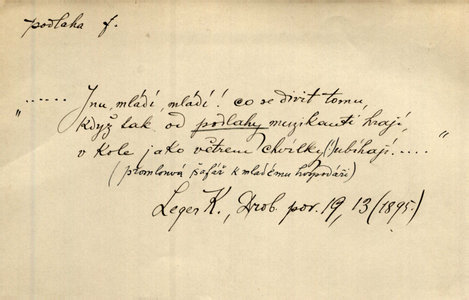 podlaha f.
„ ...... Inu, mládí, mládí! co se divit tomu,
když tak od podlahy muzikanti hrají,
v kole jako větrem chvilky (!) ubíhají. .... "
(promlouvá šafář k mladému hospodáři)
Leger K., Drob. pov. 19, 13 (1895.)